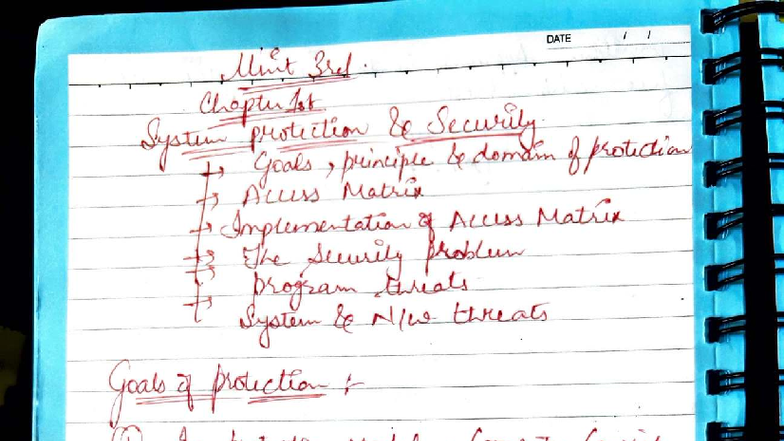 DATE / /
Unit 3rd.
Chapter 1st
System protection & Security
→ Goals, principle & domain of protection
→ Access Matrix
→ Implementation of Access Matrix
→ The Security problem
→ program threats
→ System & N/w threats
Goals of protection :-